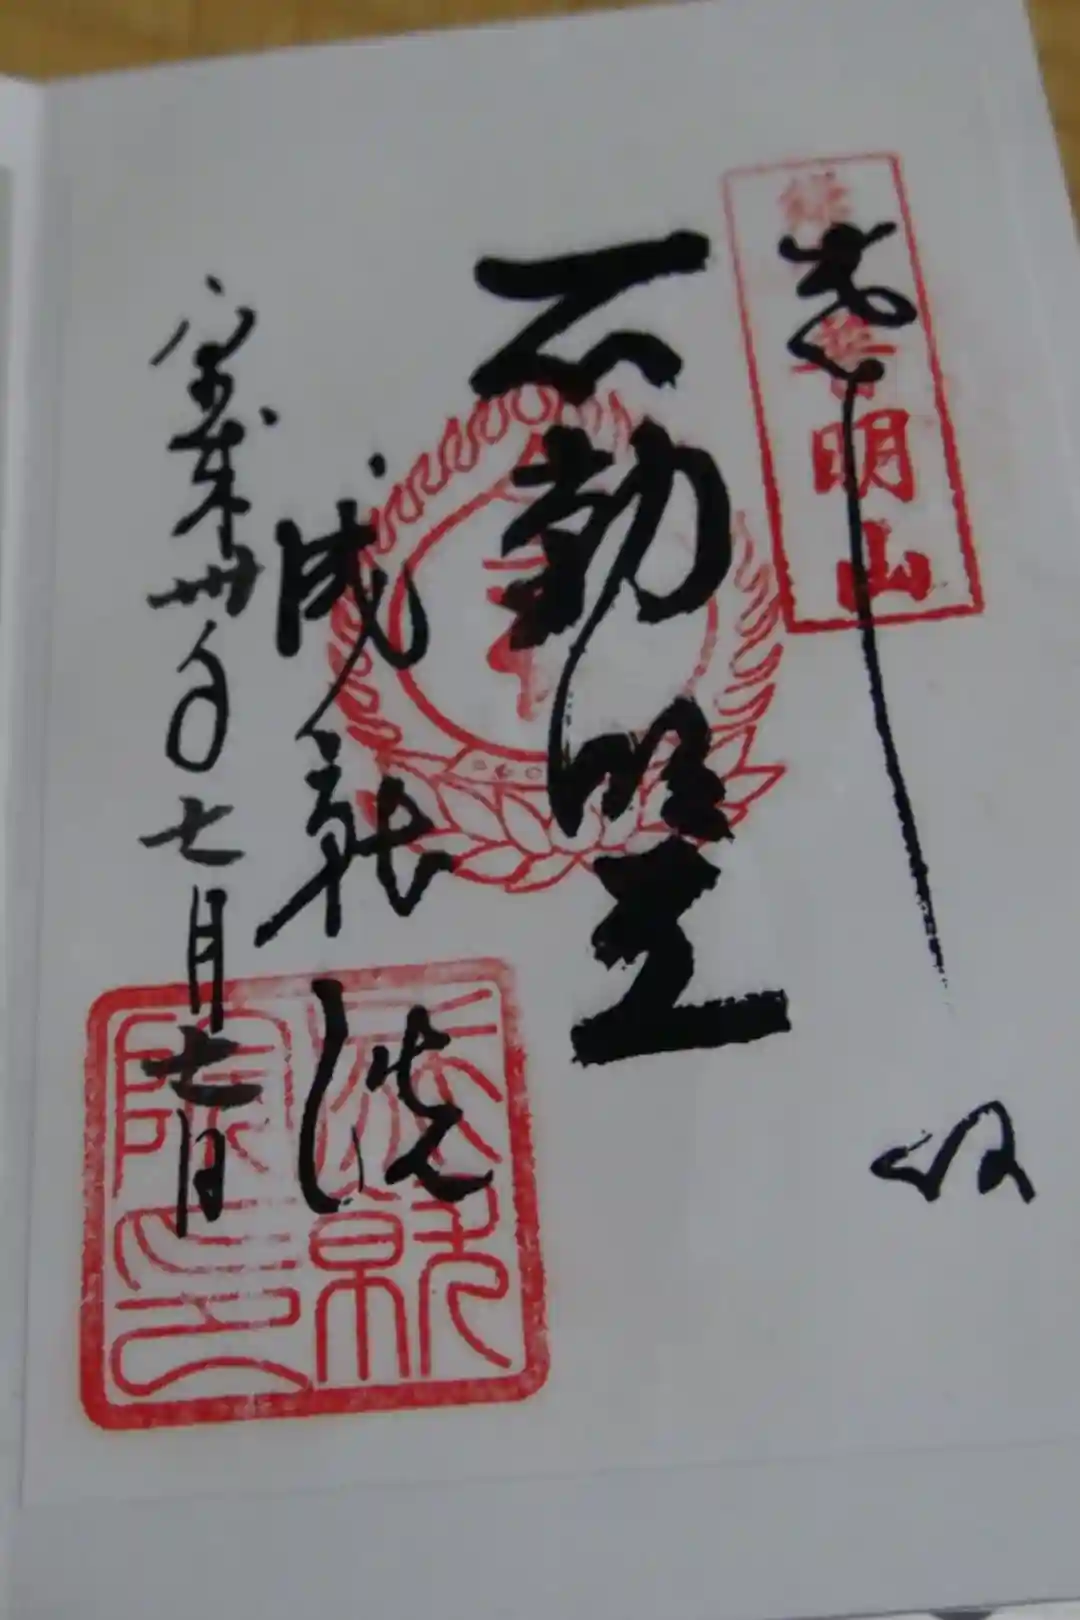 奉拝
明山
不動明王
成就院
平成卅年七月七日
成就
院印